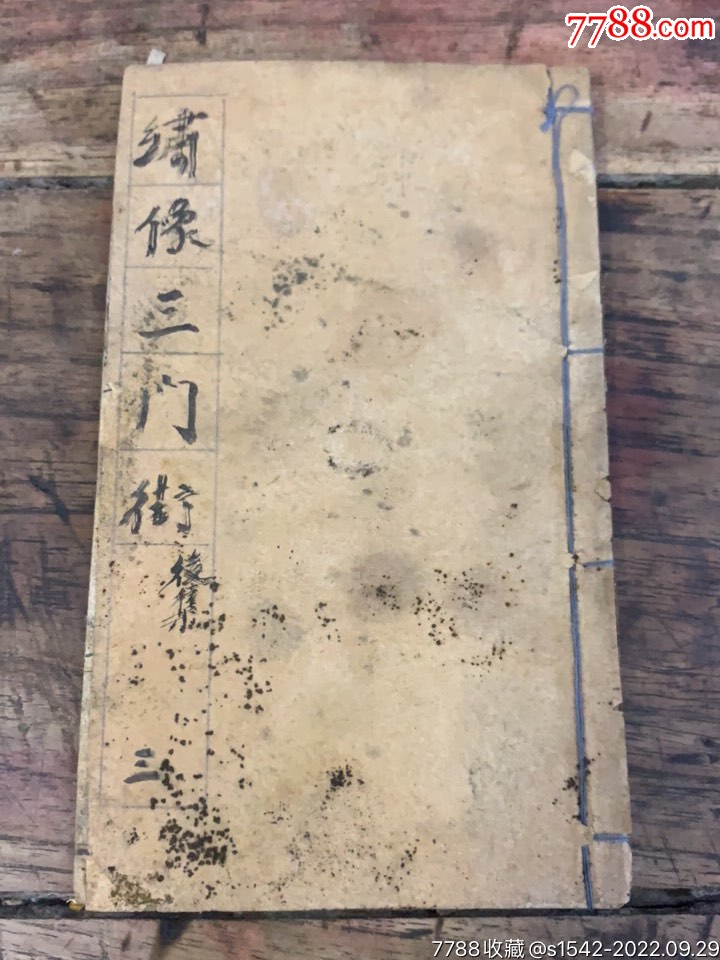 7788.com
繡像三門街
後集
三
7788收藏@s1542-2022.09.29